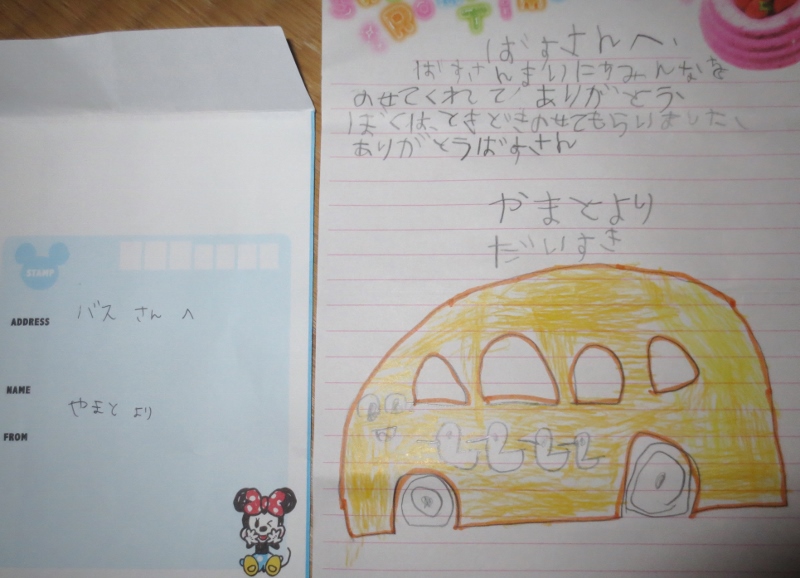 STAMP
ADDRESS
バス さん へ
NAME
やまと より
FROM
ばすさんへ、
ばすさんまいにちみんなを
のせてくれて、ありがとう、
ぼくは、ときどきのせてもらいました、
ありがとうばすさん
やまとより
だいすき